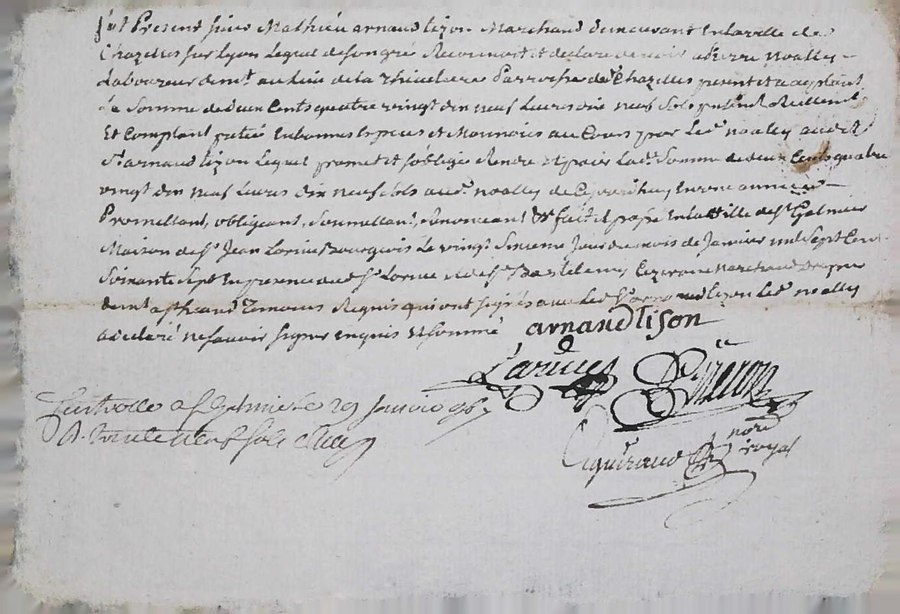 fut Present sieur Mathieu arnaud tizon Marchand demeurant en la ville de
Chazelles sur Lyon Lequel de son gré Reconnoit et declare devoir a Pierre Noally
Laboureur demt. au lieu de la Parroisse de Chazelles present et acceptant
La Somme de deux Cents quatre vingt dix neuf Livres dix neuf Sols
Et Comptant en bonnes Especes et Monnoies au Cours par Led. noally aud. st
Sr. arnaud tizon Lequel promet et s'oblige Rendre et paier Lad. Somme de deux Cents quatre
vingt dix neuf Livres dix neuf sols aud. noally de Cejourdhuy En une année
Promettant, obligeant, Soumettant, Renonceant &a. fait et passé En la Ville de St. Galmier
Maison de Sr. Jean Bourgeois Le vingt Sixieme Jour du mois de Janvier mil Sept Cent
Soixante Sept En presence dud. Sr. et de Sr. Marchand
demt. Temoins Requis qui ont signés avec Led. Sr. arnaud tizon Led. noally
a declaré ne savoir signer enquis et sommé arnaudtison
nore.
royal
a St Galmier Le 29 Janvier 1767